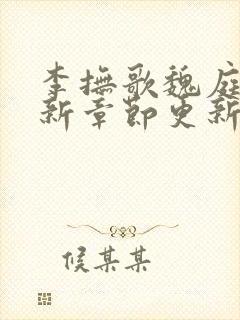 李撫歌魏庭
新章節更新
候某某